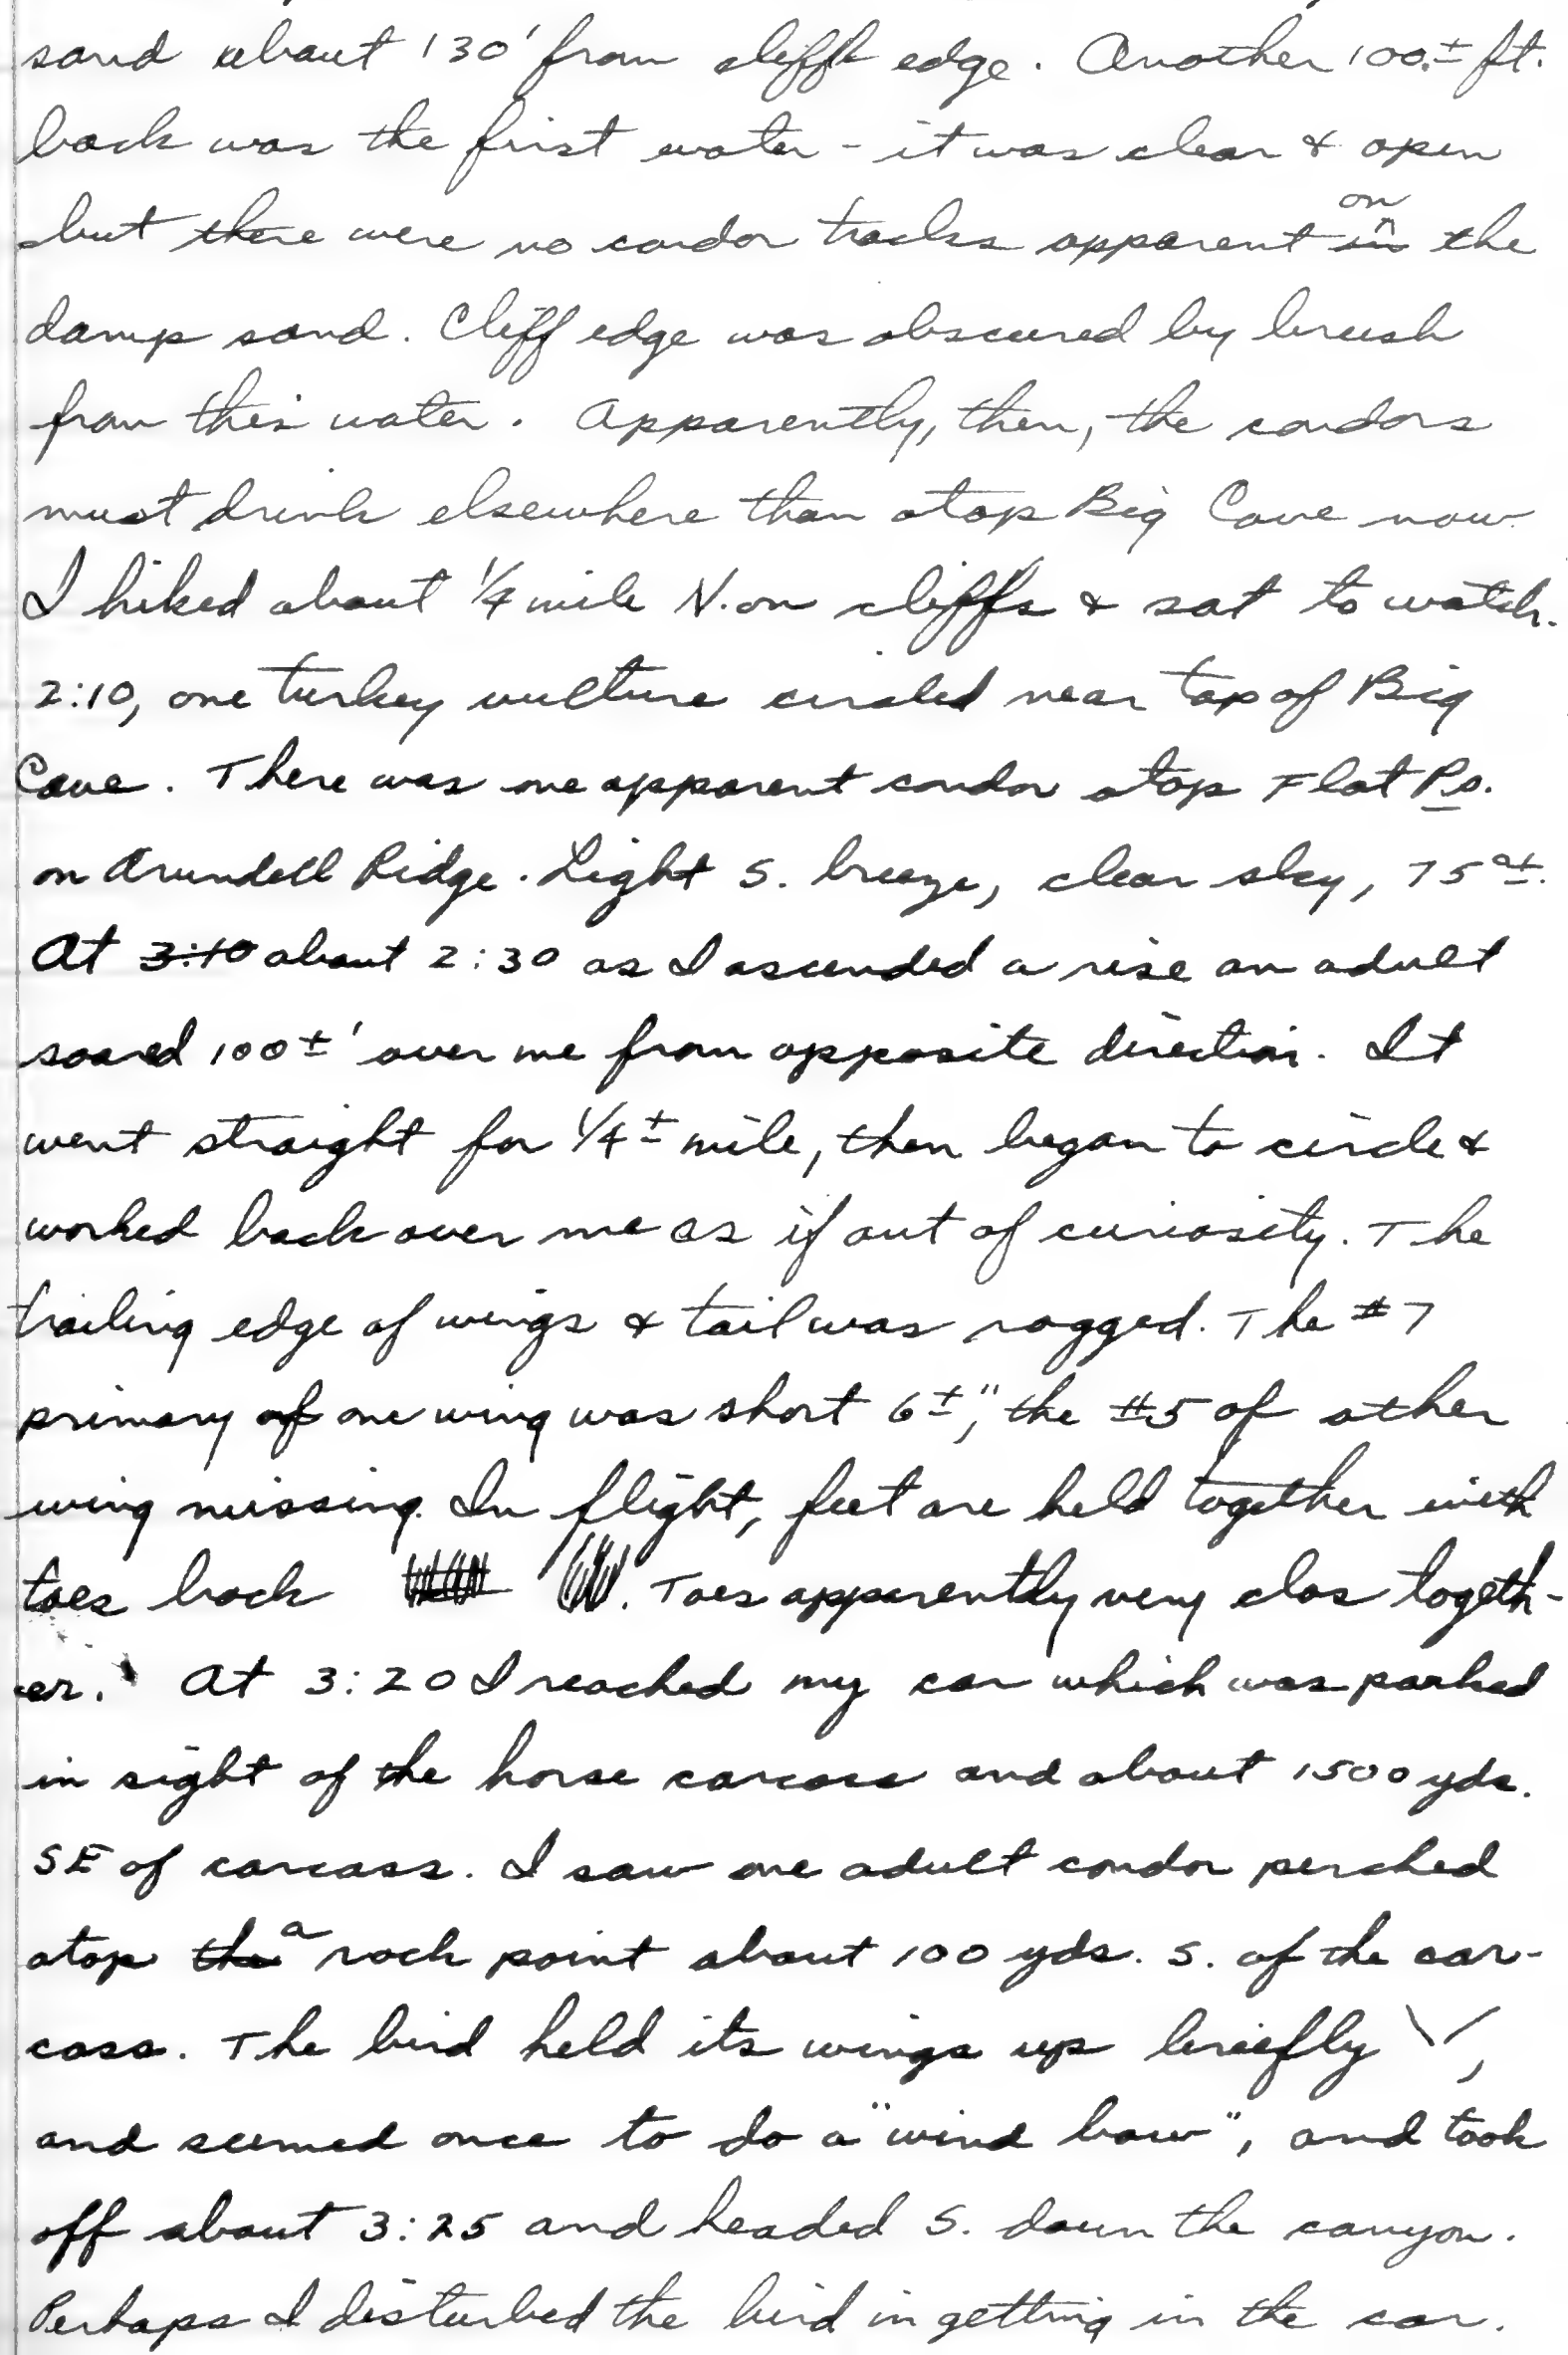 sand about 130' from cliff edge. Another 100± ft.
back was the first water - it was clear & open
but there were no condor tracks apparent on the
damp sand. Cliff edge was obscured by brush
from this water. Apparently, then, the condors
must drink elsewhere than atop Big Cave now.
I hiked about 1/4 mile N. on cliffs & sat to watch.
2:10, one turkey vulture circled near top of Big
Cave. There was one apparent condor atop Flat
on Arundell Ridge. Light S. breeze, clear sky, 75°±.
At 3:10 about 2:30 as I ascended a rise an adult
soared 100±' over me from opposite direction. It
went straight for 1/4± mile, then began to circle &
worked back over me as if out of curiosity. The
trailing edge of wings & tail was ragged. The #7
primary of one wing was short 6±", the #5 of other
wing missing. In flight, feet are held together with
toes back . Toes apparently very clos togeth-
er. At 3:20 I reached my car which was parked
in sight of the horse carcass and about 1500 yds.
SE of carcass. I saw one adult condor perched
atop the a rock point about 100 yds. S. of the car-
cass. The bird held its wings up briefly \/,
and seemed once to do a "wind bow", and took
off about 3:25 and headed S. down the canyon.
Perhaps I disturbed the bird in getting in the car.